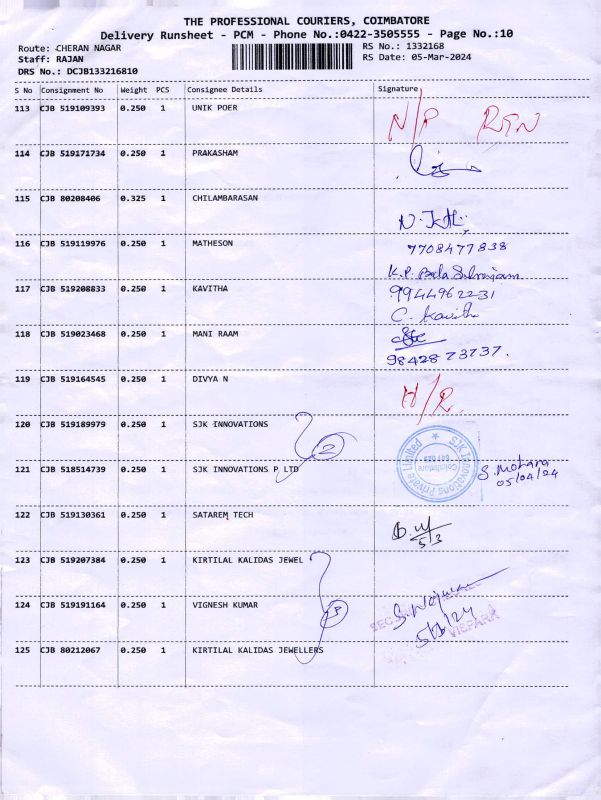 THE PROFESSIONAL COURIERS, COIMBATORE
Delivery Runsheet - PCM - Phone No.:0422-3505555 - Page No.:10
Route: CHERAN NAGAR RS No.: 1332168
Staff: RAJAN RS Date: 05-Mar-2024
DRS No.: DCJB133216810
S No Consignment No Weight PCS Consignee Details Signature
113 CJB 519109393 0.250 1 UNIK POER N/P RTN
114 CJB 519171734 0.250 1 PRAKASHAM
115 CJB 80208406 0.325 1 CHILAMBARASAN
116 CJB 519119976 0.250 1 MATHESON 7708477838
117 CJB 519208833 0.250 1 KAVITHA 9944962231
C. Kavitha
118 CJB 519023468 0.250 1 MANI RAAM
98428 73737.
119 CJB 519164545 0.250 1 DIVYA N
120 CJB 519189979 0.250 1 SJK INNOVATIONS
2
SJK Innovations Private Limited
Coimbatore
121 CJB 518514739 0.250 1 SJK INNOVATIONS P LTD S. Mohana
05/04/24
122 CJB 519130361 0.250 1 SATAREM TECH
5/3
123 CJB 519207384 0.250 1 KIRTILAL KALIDAS JEWEL
124 CJB 519191164 0.250 1 VIGNESH KUMAR
3
125 CJB 80212067 0.250 1 KIRTILAL KALIDAS JEWELLERS